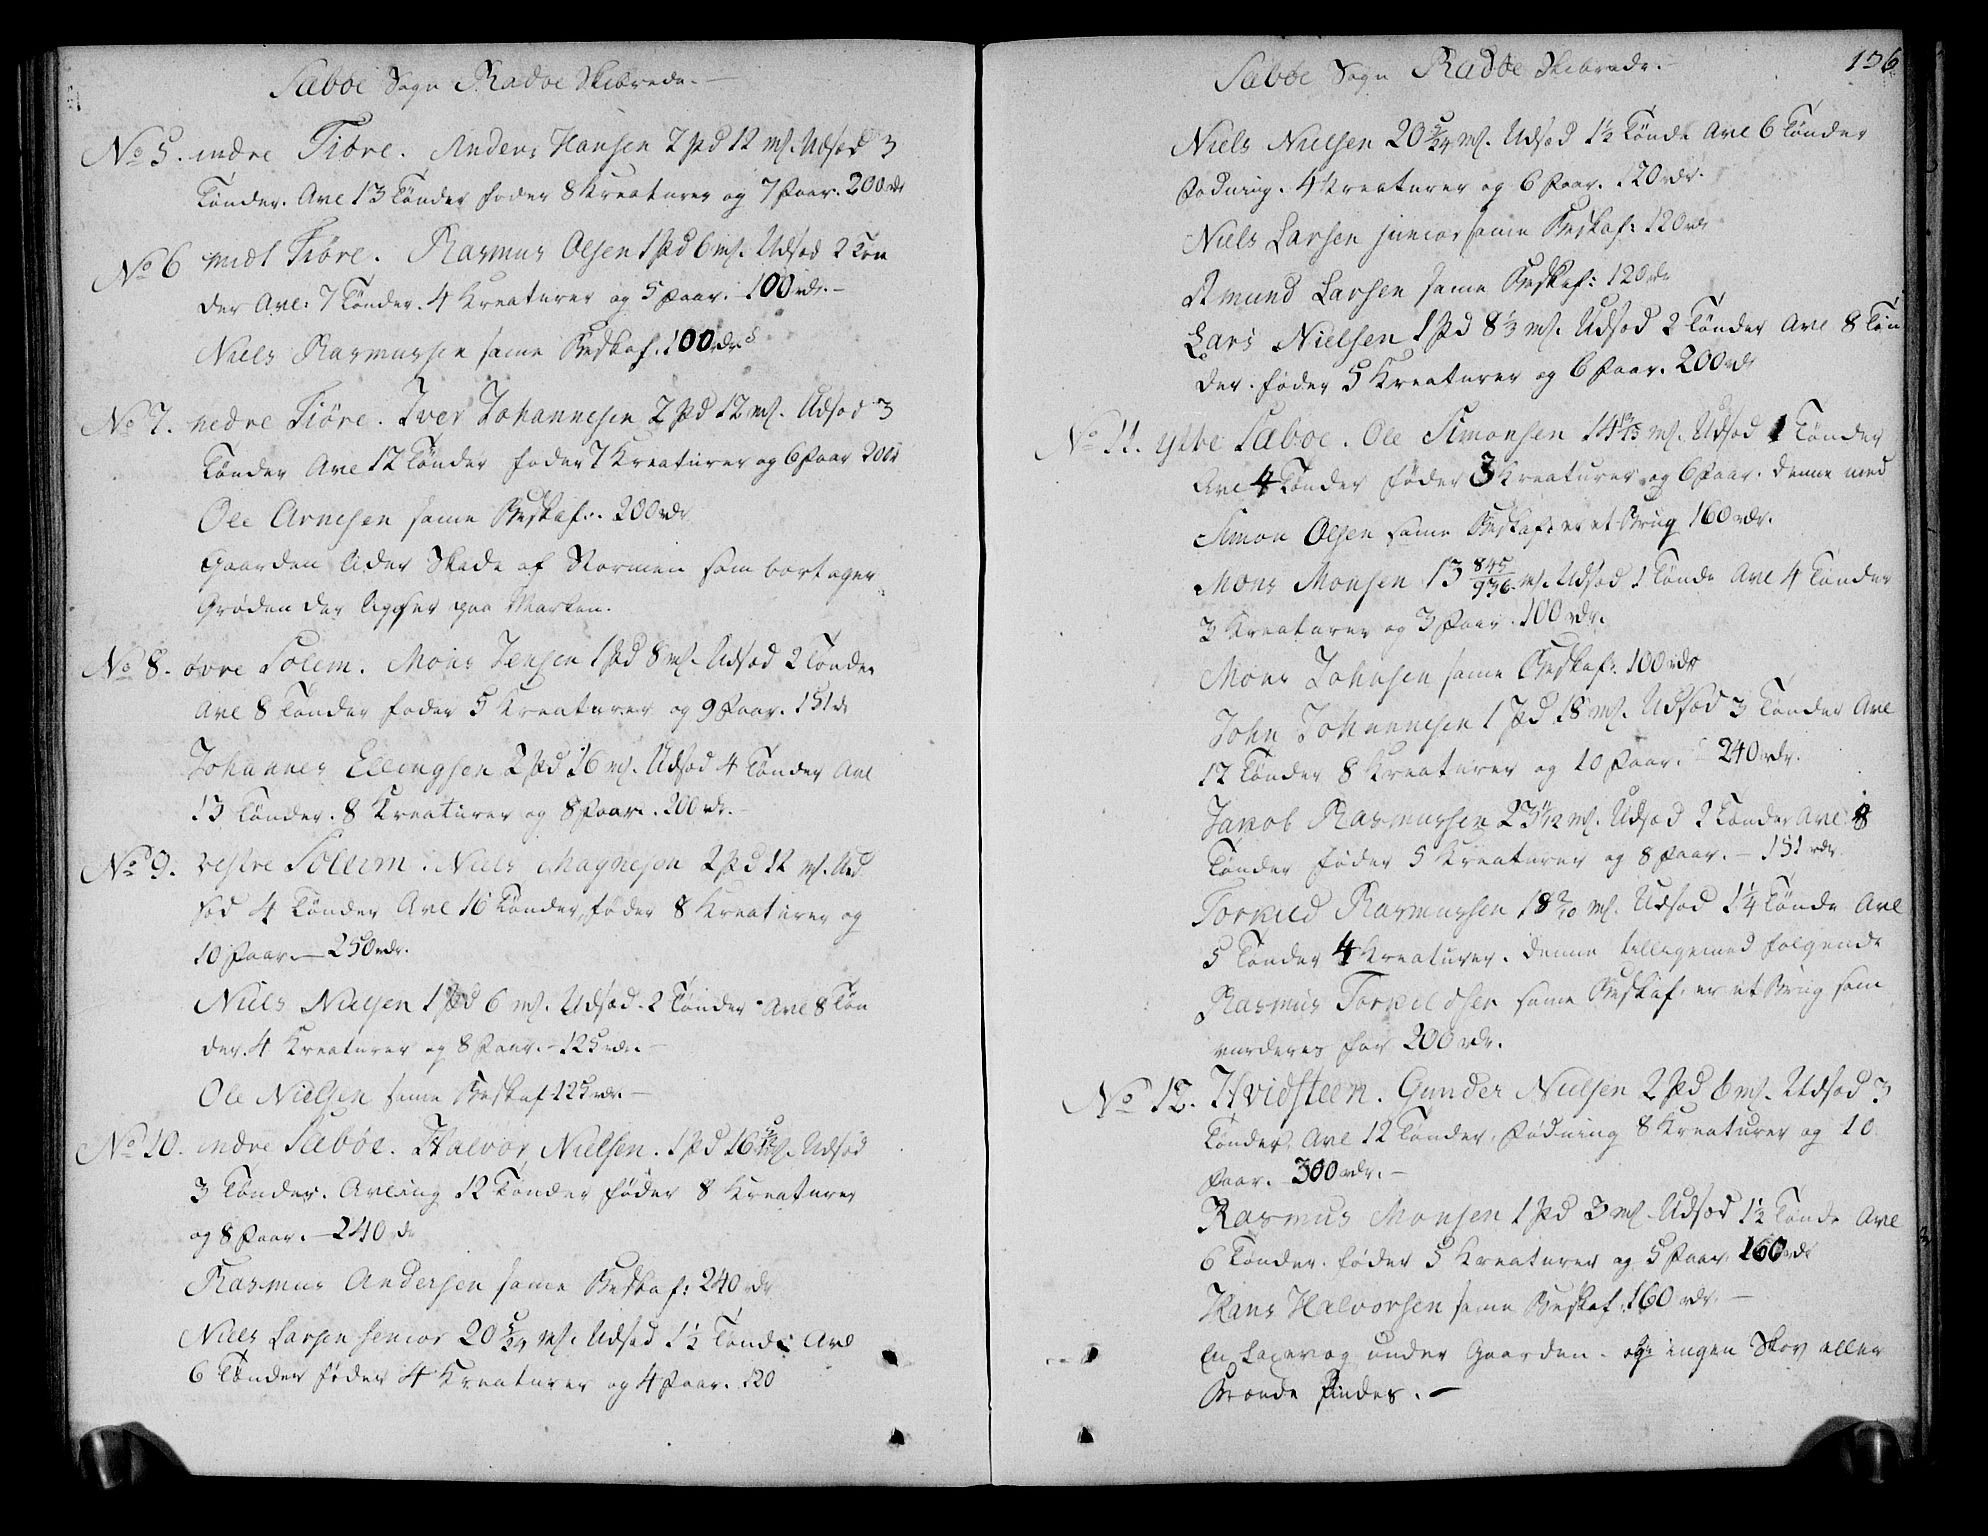 Sæbøe Sogn Radøe Skibrede. —
No 5. indre Fiøre. Anders Hansen 2 Pd 12 mk. Udsæd 3
Tønder. Avl 13 Tønder føder 8 Kreaturer og 7 Faar. 200 rdr
No 6 midt Fiøre. Rasmus Olsen 1 Pd 6 mk. Udsæd 2 Tøn
der Avl: 7 Tønder. 4 Kreaturer og 5 Faar. 100 rdr. —
Niels Rasmussen same Beskaf: 100 rdr
No 7. nedre Fiøre. Iver Johannesen 2 Pd 12 mk. Udsæd 3
Tønder Avl 12 Tønder føder 7 Kreaturer og 6 Faar 200
Ole Arnesen same Beskaf: 200 rdr
Gaarden lider Skade af Stormen som borttager
Grøden der ligger paa Marken.
No 8. øvre Solem. Mons Jensen 1 Pd 8 mk. Udsæd 2 Tønder
Avl 8 Tønder føder 5 Kreaturer og 9 Faar. 151 dr
Johannes Ellingsen 2 Pd 16 mk. Udsæd 4 Tønder Avl
13 Tønder. 8 Kreaturer og 8 Faar. 200 rdr. —
No 9. vestre Solem. Niels Magnesen 2 Pd 12 mk. Ud
sæd 4 Tønder Avl 16 Tønder, føder 8 Kreaturer og
10 Faar. — 250 rdr.
Niels Nielsen 1 Pd 6 mk. Udsæd 2 Tønder Avl 8 Tøn
der. 4 Kreaturer og 8 Faar. — 125 rdr. —
Ole Nielsen same Beskaf 125 rdr. —
No 10. indre Sæbøe. Halvor Nielsen. 1 Pd 16 5/12 mk. Udsæd
3 Tønder. Avling 12 Tønder føder 8 Kreaturer
og 8 Faar. — 240 dr
Rasmus Andersen same Beskaf: 240 rdr
Niels Larsen senior 20 5/24 mk. Udsæd 1½ Tønde Avl
6 Tønder føder 4 Kreaturer og 4 Faar. 120
Sæbøe Sogn Radøe Skibrede. —
136
Niels Nielsen 20 5/24 mk. Udsæd 1½ Tønde Avl 6 Tønder
Fødning. 4 Kreaturer og 6 Faar. 120 rdr.
Niels Larsen junior same Beskaf: 120 rdr
Amund Larsen same Beskaf: 120 rdr
Lars Nielsen 1 Pd 8⅓ mk. Udsæd 2 Tønder Avl 8 Tøn
der. føder 5 Kreaturer og 6 Faar. 200 rdr
No 11. ytre Sæbøe. Ole Simonsen 14 mk. Udsæd 1 Tønder
Avl 4 Tønder føder 3 Kreaturer og 6 Faar. denne med
Simon Olsen same Beskaf: er et Brug 160 rdr.
Mons Monsen 13 845/936 mk. Udsæd 1 Tønde Avl 4 Tønder
3 Kreaturer og 3 Faar. 100 rdr.
Mons Johnsen same Beskaf: 100 rdr
John Johannesen 1 Pd 18 mk. Udsæd 3 Tønder Avl
12 Tønder 8 Kreaturer og 10 Faar. — 240 rdr.
Jakob Rasmussen 23 mk. Udsæd 2 Tønder Avl 8
Tønder føder 5 Kreaturer og 8 Faar. — 151 rdr
Torkild Rasmussen 18 mk. Udsæd 1¼ Tønde Avl
5 Tønder 4 Kreaturer. denne tilligemed følgende
Rasmus Torkildsen same Beskaf: er et Brug som
vurderes for 200 rdr.
No 12. Hvidsteen. Gunder Nielsen 2 Pd 6 mk. Udsæd 3
Tønder. Avl 12 Tønder, Fødning 8 Kreaturer og 10
Faar. 300 rdr. —
Rasmus Monsen 1 Pd 3 mk. Udsæd 1½ Tønde Avl
6 Tønder. føder 5 Kreaturer og 5 Faar 160 rdr
Hans Halvorsen same Beskaf: 160 rdr. —
En Laxevog under Gaarden. og ingen Skov eller
Brænde findes. —